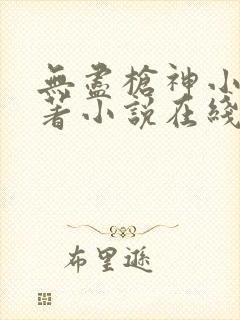 無盡槍神小
著小說在綫
布里遜